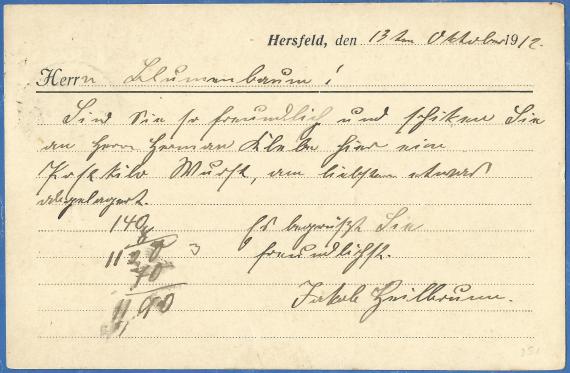 Hersfeld, den 13ten Oktober 1912.
Herrn Blumenbaum!
Sind Sie so freundlich und schiken Sie
an Herrn Herman Klebe hier ein
Postkilo Wurst, am liebsten etwas
abgelagert.
140
8
Es begrüßt Sie
1120
freundlichst.
70
Jakob Heilbrunn.
1190